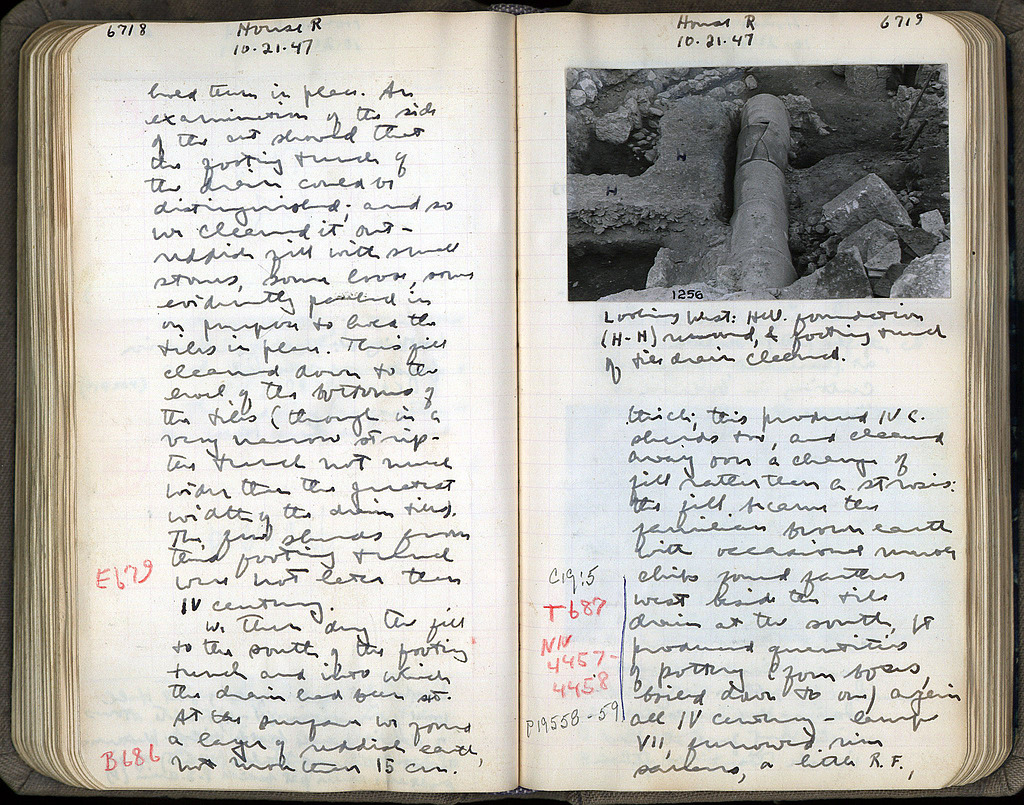 6718 House R
10·21·47
hold them in place. An
examination of the side
of the cut showed that
the footing trench of
the drain could be
distinguished; and so
we cleaned it out –
reddish fill with small
stones, some loose, some
evidently packed in
on purpose to hold the
tiles in place. This fill
cleaned down to the
level of the bottoms of
the tiles (though in a
very narrow strip –
the trench not much
wider than the greatest
width of the drain tiles).
The few sherds from
this footing trench
E679
were not later than
IV century.
We then dug the fill
to the south of the footing
trench and into which
the drain had been set.
At the surface we found
a layer of reddish earth,
B686
not more than 15 cm.
6719
House R
10·21·47
H
H
1256
Looking West: Hell. foundation
(H-H) removed, & footing trench
of tile drain cleaned.
thick; this produced IV c.
sherds too, and cleaned
away over a change of
fill rather than a strosis:
the fill became the
familiar brown earth
with occasional marble
C19:5
chips found farther
T687
west beside the tile
drain at the south. It
NN
4457-
4458
produced quantities
of pottery (from boxes,
boiled down to one) again
P19558-59
all IV century – lamps
VII, furrowed rim
saucers, a little R.F.,